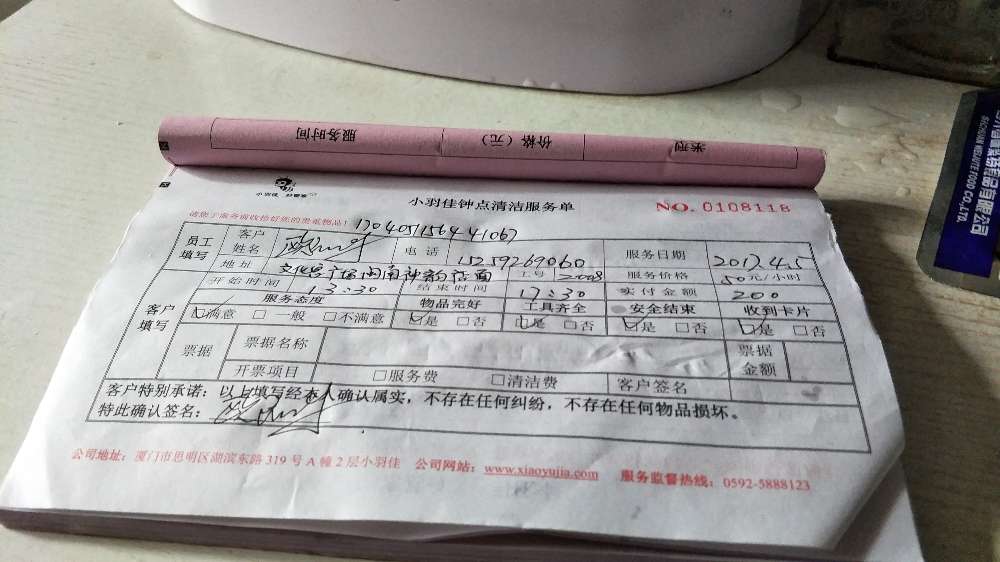 服务时间 价格（元） 类型
小羽佳
小羽佳钟点清洁服务单 NO. 0108118
请您于服务前收拾好您的贵重物品！
员工填写 客户姓名 电话 15259269060 服务日期 2017.4.5
地址 工号 服务价格 50元/小时
开始时间 13:30 结束时间 17:30 实付金额 200
客户填写 服务态度 物品完好 工具齐全 安全结束 收到卡片
☑满意 □一般 □不满意 ☑是 □否 ☑是 □否 ☑是 □否 ☑是 □否
票据 票据名称 票据金额
开票项目 □服务费 □清洁费 客户签名
客户特别承诺：以上填写经本人确认属实，不存在任何纠纷，不存在任何物品损坏。
特此确认签名：
公司地址：厦门市思明区湖滨东路319号A幢2层小羽佳 公司网站：www.xiaoyujia.com 服务监督热线：0592-5888123
SICHUAN MEIXUTE FOOD CO.,LTD.